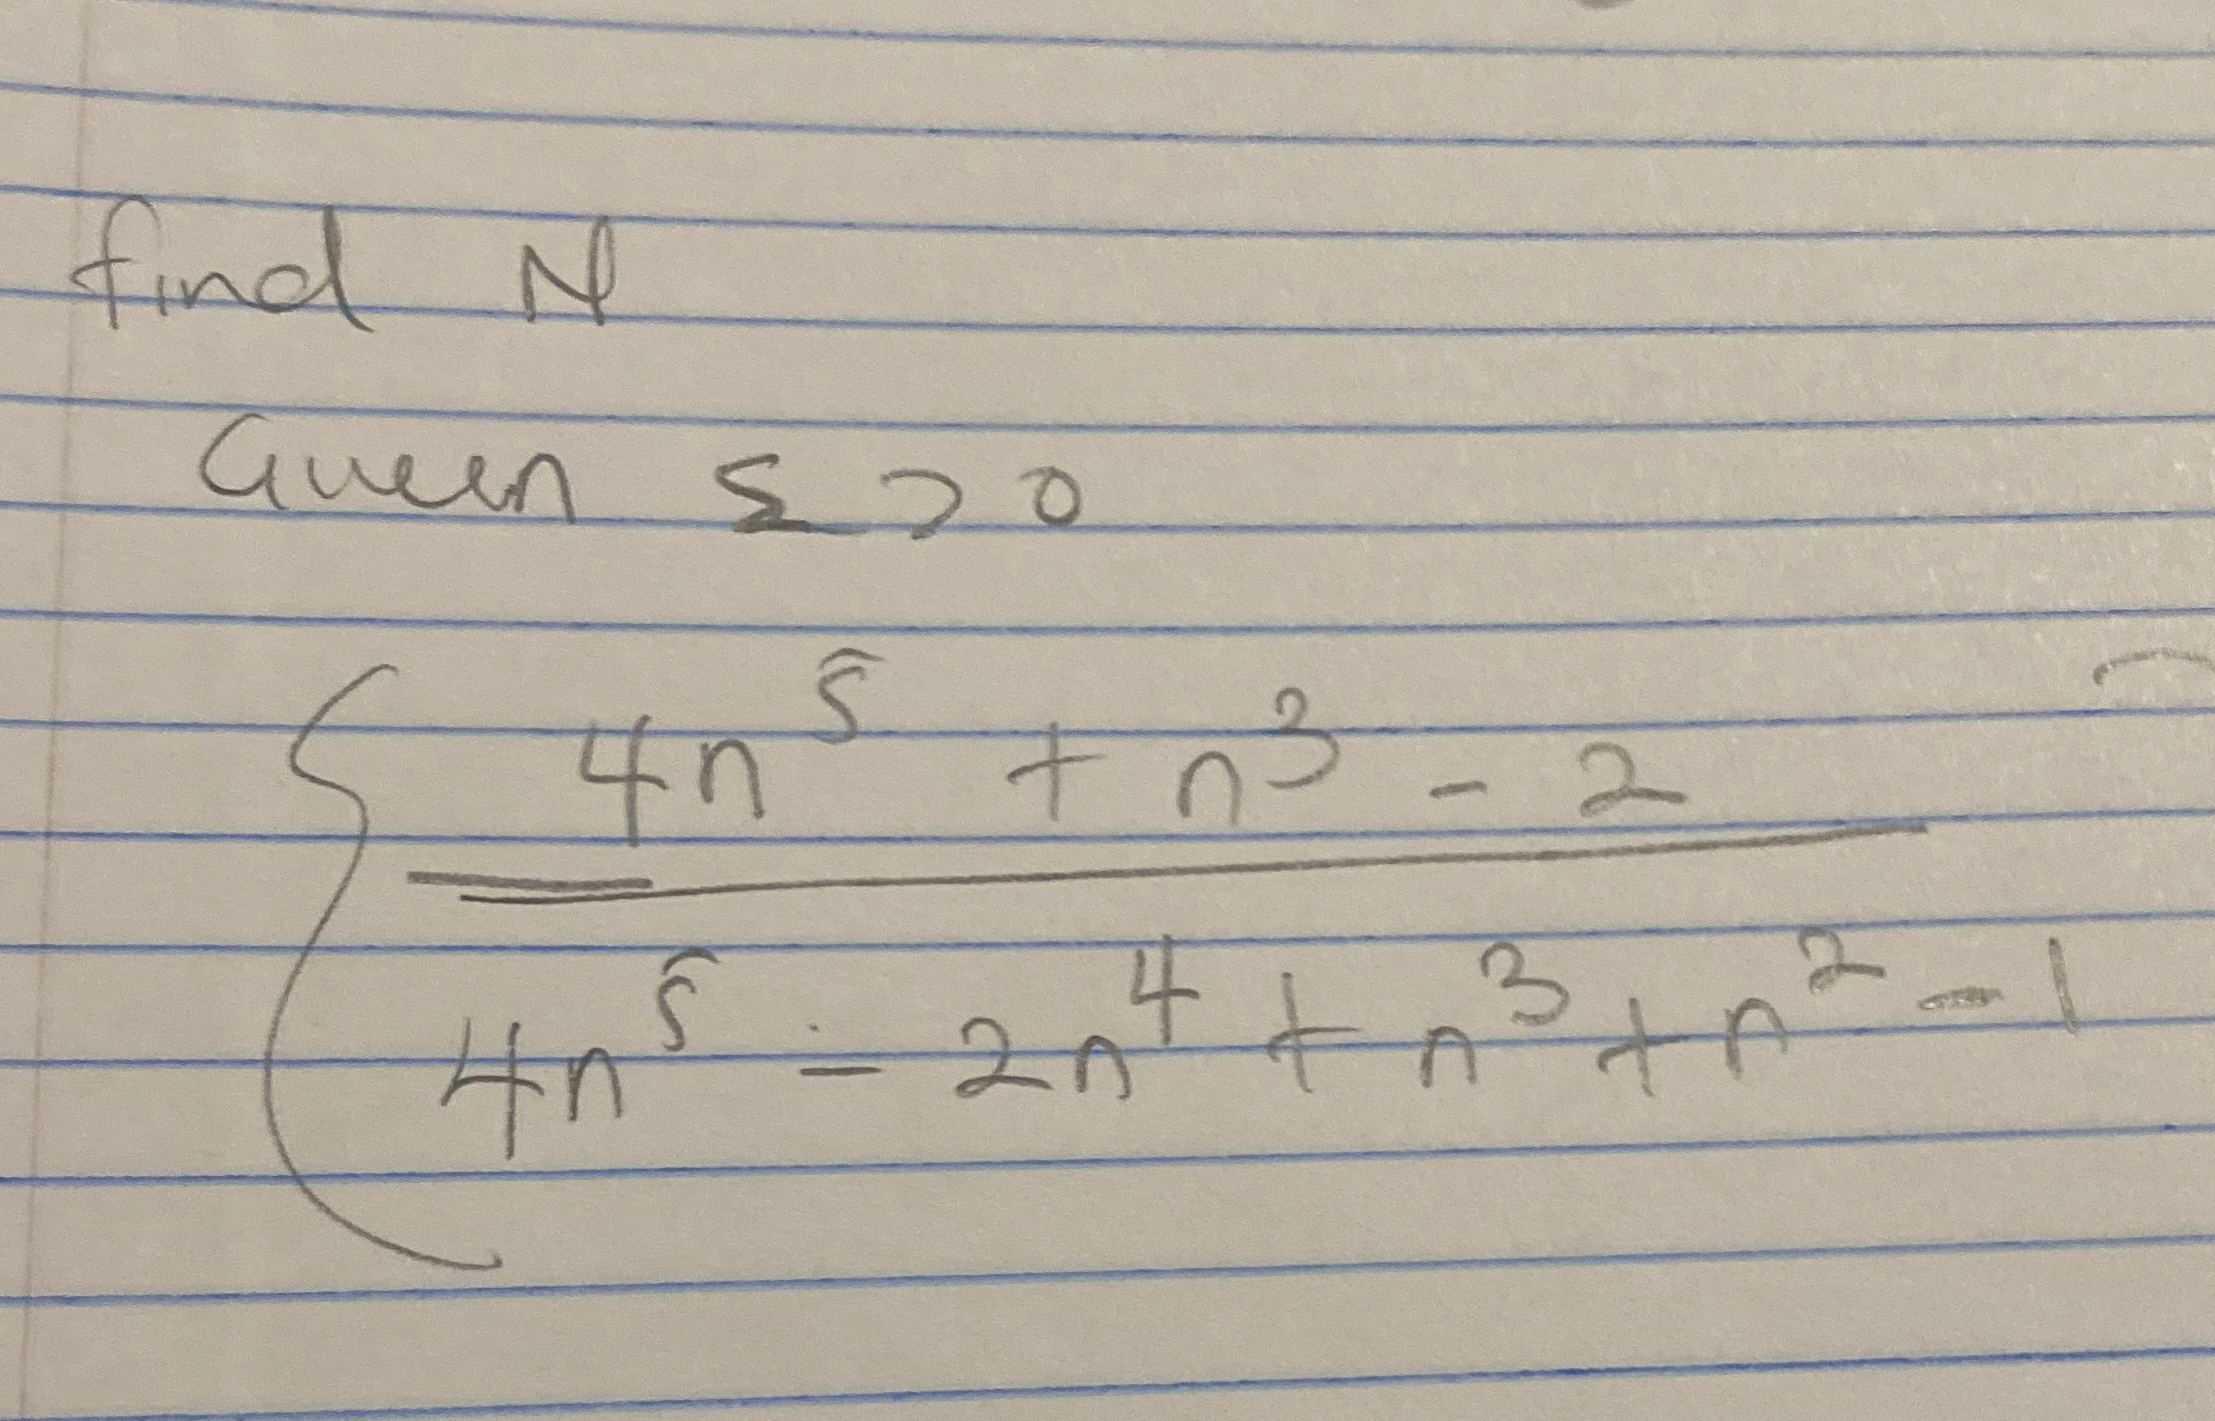 find N
Given ε > 0
4n⁵ + n³ - 2
4n⁵ - 2n⁴ + n³ + n² - 1